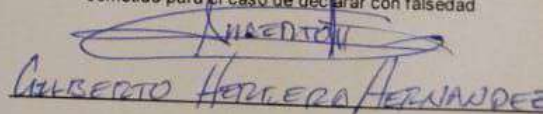 cometido para el caso de declarar con falsedad
GILBERTO HERRERA HERNANDEZ